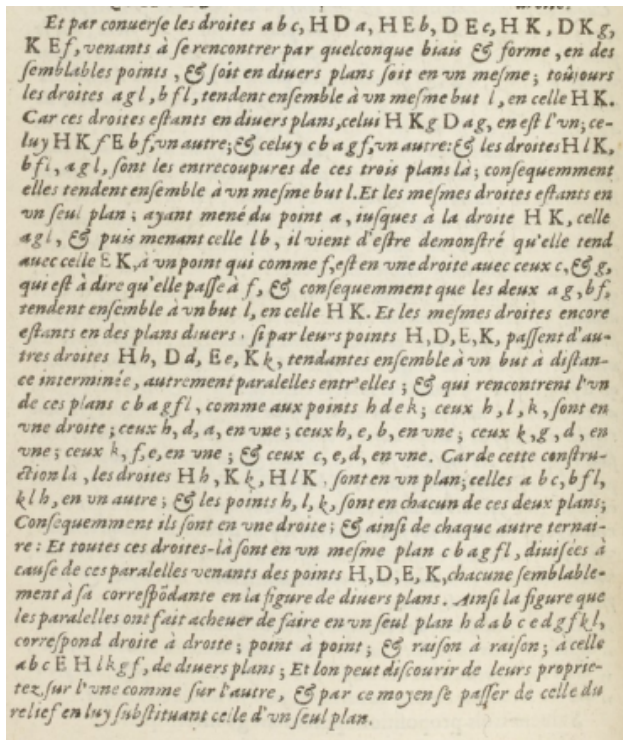 Et par conuerse les droites a b c, H D a, H E b, D E c, H K, D K g,
K E f, venants à se rencontrer par quelconque biais & forme, en des
semblables points, & soit en diuers plans soit en vn mesme; toûjours
les droites a g l, b f l, tendent ensemble à vn mesme but l, en celle H K.
Car ces droites estants en diuers plans, celui H K g D a g, en est l'vn; ce-
luy H K f E b f, vn autre; & celuy c b a g f, vn autre: & les droites H l K,
b f l, a g l, sont les entrecoupures de ces trois plans là; consequemment
elles tendent ensemble à vn mesme but l. Et les mesmes droites estants en
vn seul plan; ayant mené du point a, iusques à la droite H K, celle
a g l, & puis menant celle l b, il vient d'estre demonstré qu'elle tend
auec celle E K, à vn point qui comme f, est en vne droite auec ceux c, & g,
qui est à dire qu'elle passe à f, & consequemment que les deux a g, b f,
tendent ensemble à vn but l, en celle H K. Et les mesmes droites encore
estants en des plans diuers, si par leurs points H, D, E, K, passent d'au-
tres droites H h, D d, E e, K k, tendantes ensemble à vn but à distan-
ce interminée, autrement paralelles entr'elles; & qui rencontrent l'vn
de ces plans c b a g f l, comme aux points h d e k; ceux h, l, k, sont en
vne droite; ceux h, d, a, en vne; ceux h, e, b, en vne; ceux k, g, d, en
vne; ceux k, f, e, en vne; & ceux c, e, d, en vne. Car de cette constru-
ction là, les droites H h, K k, H l K, sont en vn plan; celles a b c, b f l,
k l h, en vn autre; & les points h, l, k, sont en chacun de ces deux plans;
Consequemment ils sont en vne droite; & ainsi de chaque autre ternai-
re: Et toutes ces droites-là sont en vn mesme plan c b a g f l, diuisées à
cause de ces paralelles venants des points H, D, E, K, chacune semblable-
ment à sa correspõdante en la figure de diuers plans. Ainsi la figure que
les paralelles ont fait acheuer de faire en vn seul plan h d a b c e d g f k l,
correspond droite à droite; point à point; & raison à raison; a celle
a b c E H l k g f, de diuers plans; Et lon peut discourir de leurs proprie-
tez sur l'vne comme sur l'autre, & par ce moyen se passer de celle du
relief en luy substituant celle d'vn seul plan.